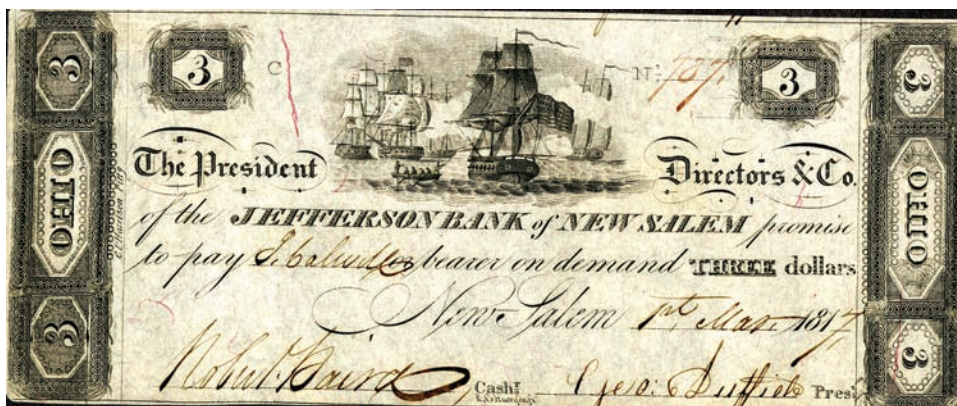 3 3 C Nº 737. 3 3
OHIO OHIO
The President Directors & Co.
of the JEFFERSON BANK of NEW SALEM promise
to pay or bearer on demand THREE dollars
New Salem 1st Mar. 1817
Robert Baird Cashr. Geo: Duffield Prest.
3 3